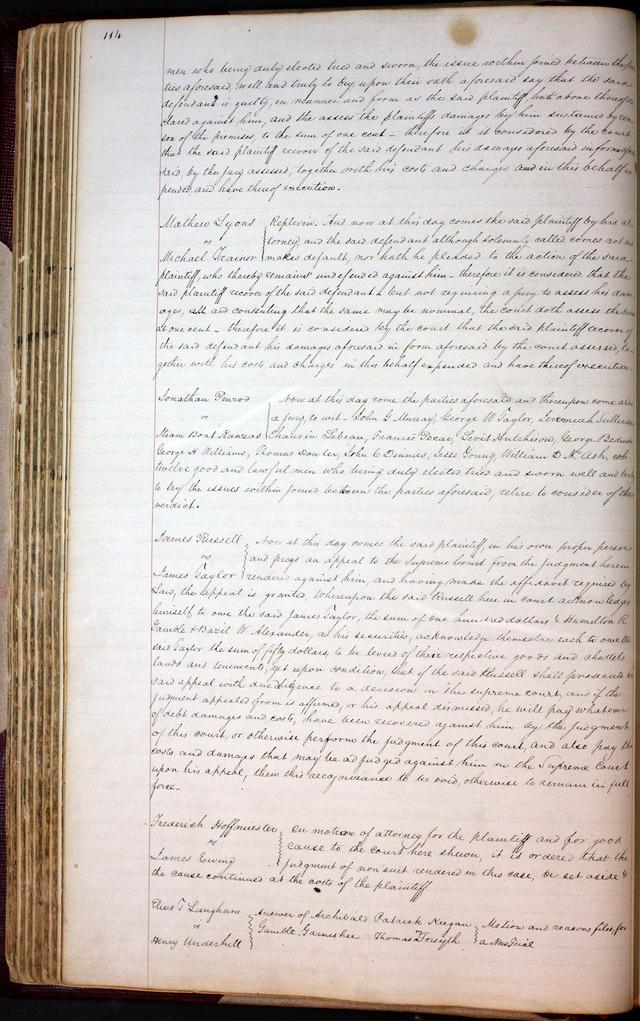 114
men who being duly elected tried and sworn, the issue within joined between the par
ties aforesaid, well and truly to try, upon their oath aforesaid say that the said
defendant is guilty, in manner and form as the said plaintiff hath above thereof de
clared against him, and the assess the plaintiffs damages by him sustained by rea
son of the premises, to the sum of one cent - therefore it is considered by the court
that the said plaintiff recover of the said defendant his damages aforesaid in form afore
said, by the jury assessed, together with his costs and charges and in this behalf ex
pended and have thereof execution.
Mathew Lyons Replevin. And now at this day comes the said plaintiff by his at
vs torney, and the said defendant although solemnly called comes not but
Michael Trainor makes default, nor hath he pleaded to the action of the said
plaintiff, who thereby remains undefended against him - therefore it is considered that the
said plaintiff recover of the said defendant - but not requiring a jury to assess his dam
ages, and consenting that the same may be nominal, the court doth assess the same
at one cent - therefore it is considered by the court that the said plaintiff recover of
the said defendant his damages aforesaid in form aforesaid by the court assessed, to
gether with his costs and charges in this behalf expended and have thereof execution
Jonathan Penrod Now at this day come the parties aforesaid and thereupon come also
vs a jury, to wit - John G Murray, George W Taylor, Jeremiah Sullivan
Steam Boat Kanzas Chauvin Lebeau, Francis Levit Hutchison, George
George H Williams, Thomas John C Dennies, Jesse Young, William D McAsh,
twelve good and lawful men who being duly elected tried and sworn well and truly
to try the issues within joined between the parties aforesaid, retire to consider of their
verdict.
James Russell Now at this day comes the said plaintiff, in his own proper person
vs and prays an appeal to the Supreme Court from the judgment herein
James Taylor rendered against him, and having made the affidavit required by
Law, the appeal is granted, whereupon the said Russell here in court acknowledges
himself to owe the said James Taylor, the sum of one hundred dollars & Hamilton R
Gamble & Bazil W Alexander, as his securities, acknowledge themselves each to owe the
said Taylor the sum of fifty dollars, to be levied of their respective goods and chattels
lands and tenements, yet upon condition, that if the said Russell shall prosecute his
said appeal with due diligence to a decision in the supreme court, and if the
judgment appealed from is affirmed, or his appeal dismissed, he will pay whatever
of debt damages and costs, have been recovered against him by the judgment
of this court, or otherwise perform the judgment of this court, and also pay the
costs and damages that may be adjudged against him in the Supreme Court
upon his appeal, then this recognizance to be void, otherwise to remain in full
force -
Frederick Hoffmiester On motion of attorney for the plaintiff and for good
vs cause to the court here shewn, it is ordered that the
James Ewing judgment of non suit rendered in this case, be set aside &
the cause continued at the costs of the plaintiff
Elias T Langham Answer of Archibald Patrick Keegan Motion and reasons files, for
vs Gamble, Garneshee Thomas Forsyth a New Trial
Henry Underhill